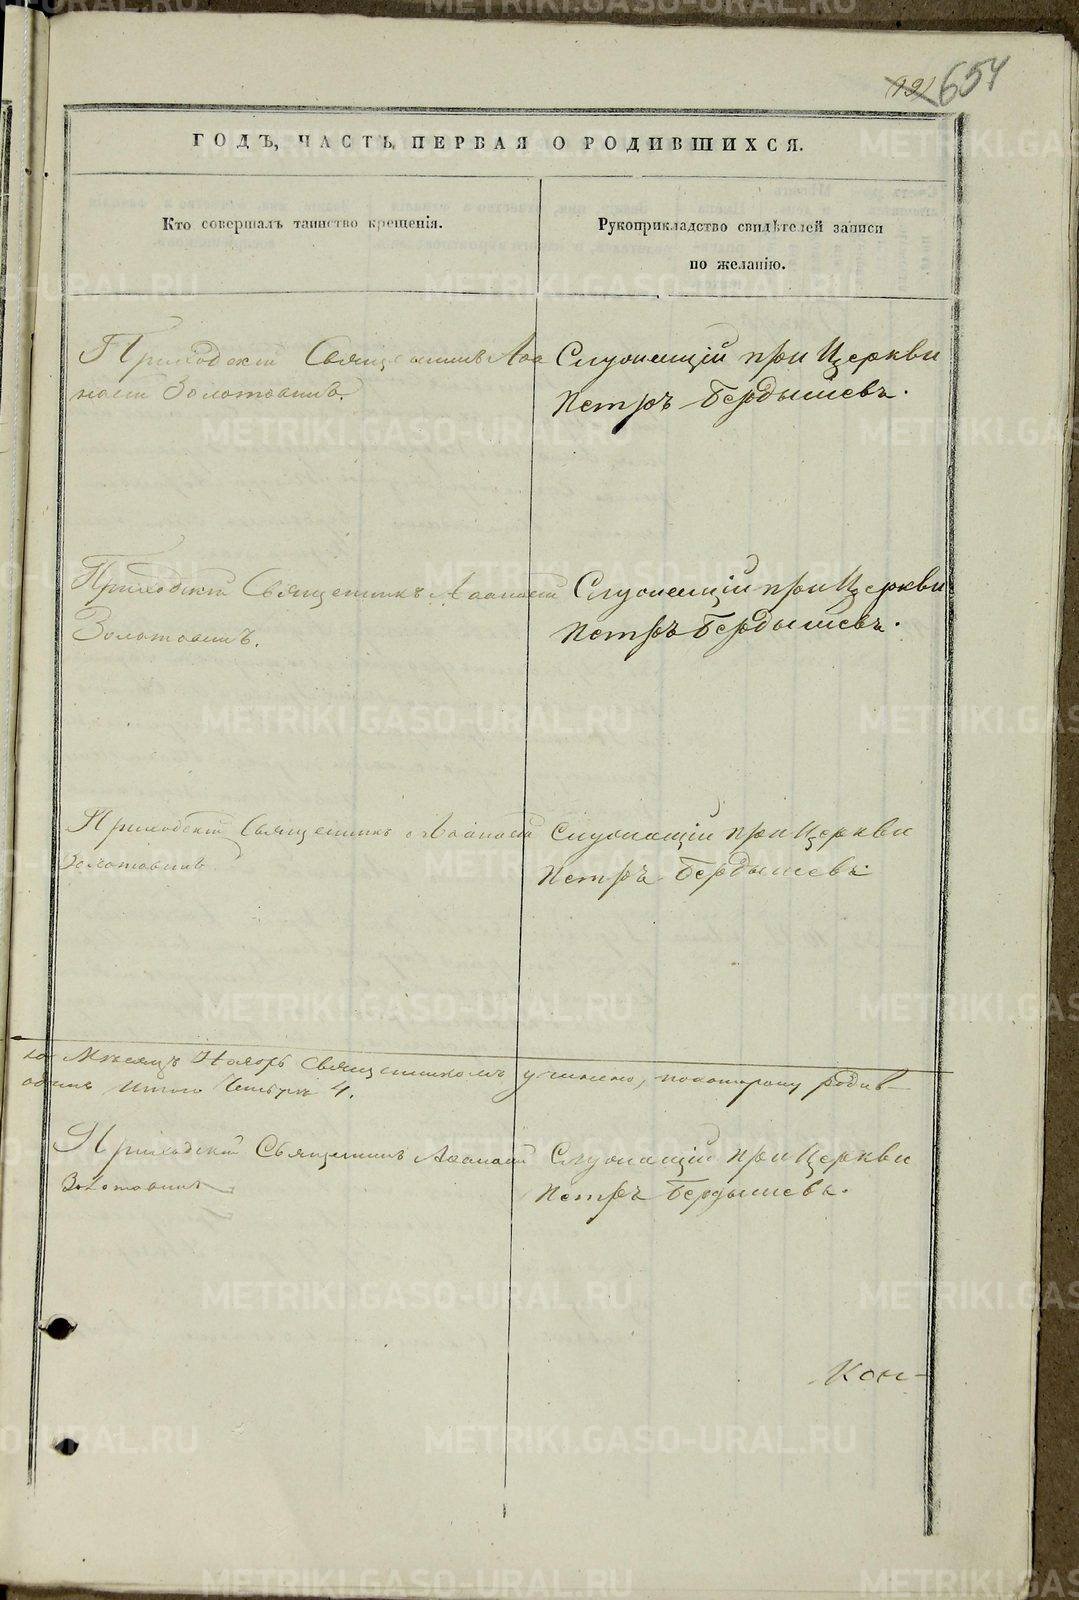 654
ГОДЪ, ЧАСТЬ ПЕРВАЯ О РОДИВШИХСЯ.
Кто совершалъ таинство крещенія.
Рукоприкладство свидѣтелей записи
по желанію.
Приходскій Священникъ Аѳа
насій Золотавинъ.
Служащій при Церкви
Петръ Бердышевъ.
Приходскій Священникъ Аѳанасій
Золотавинъ.
Служащій при Церкви
Петръ Бердышевъ.
Приходскій Священникъ Аѳанасій
Золотавинъ
Служащій при Церкви
Петръ Бердышевъ.
Мѣсяцъ Ноябрь Священникомъ учинено, покоторому родив-
одинъ Итого Четыре 4.
Приходскій Священникъ Аѳанасій
Золотавинъ
Служащій при Церкви
Петръ Бердышевъ.
Кон-
METRIKI.GASO-URAL.RU